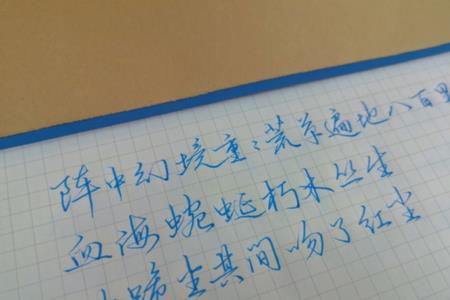 阵中幻境重重荒芜遍地八百里
血海蜿蜒朽木丛生
坐其间吻了红尘